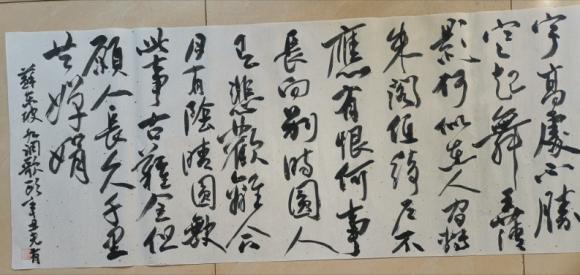 宇高處不勝
寒起舞弄清
影何似在人間轉
朱閣低綺户不
應有恨何事
長向别時圓人
有悲歡離合
月有陰晴圓缺
此事古難全但
願人長久千里
共嬋娟
蘇東坡水調歌頭辛丑元